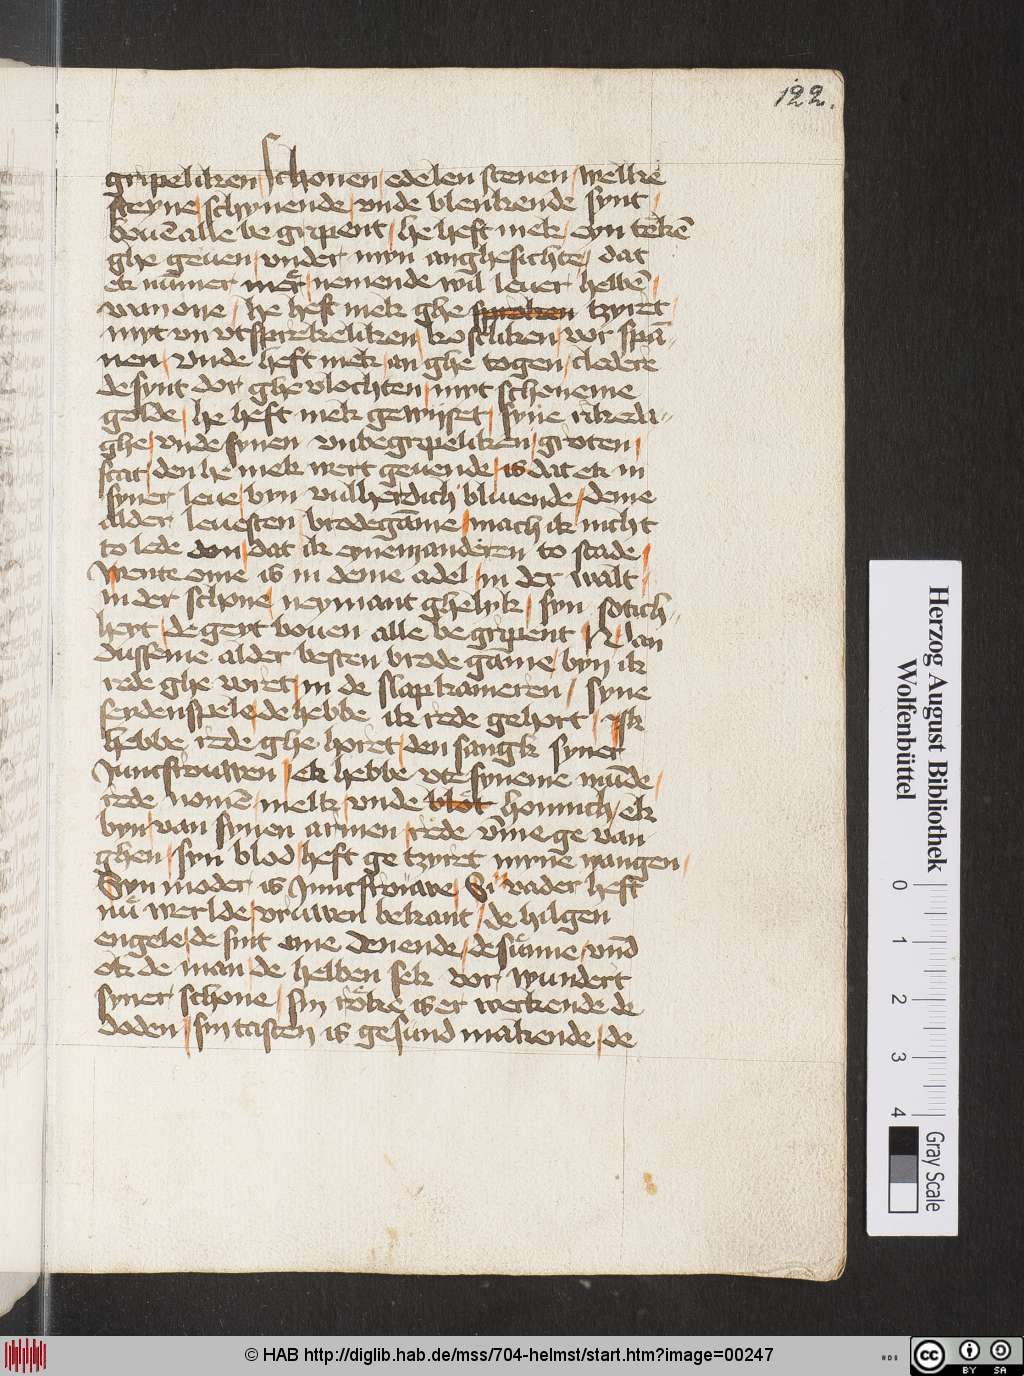 122.
gripeliken / schonen / edelen stenen / welke
steyne / schynende / vnde blenkende synt /
bouē alle be gripent / he heft mek / eyn tekē
ghe geuen / vnder myn anghesichte / dat
ek nūmer mer / nemende wil leuer hebbē /
wan one / he heft mek ghe sproken tzyret /
myt vn vtsprekeliken / kostliken / vor spā-
nen / vnde heft mek / an ghe togen / cledere
de synt dor ghe vlochten / myt schoneme
golde / he heft mek gewiiset / syne rikeda-
ghe / vnde synen vnbegripeliken / groten /
stat / den he mek wert geuende / is dat ek in
syner leue / byn vulherdich bliuende / deme
alder leuesten / brodegāme / mach ik nicht
to lede don / dat ik eynem anderen to stade /
Wente ome is in deme adel / in der walt /
in der schone / neymant ghelyk / syn sotich-
heyt / de geyt bouen alle be gripent / Van
dusseme alder besten brode gāme / byn ik
rede ghe voret / in de slapkameren / syne
seydenspele / de hebbe ik rede gehort / Ik
hebbe rede ghe horet / den sangk syner
Juncfrouwen / ek hebbe vte syneme mūde /
rede nomē / melk / vnde blot honnich / ek
byn / van synen armen / rede vme ge van-
ghen / syn blod heft ge tzyret myne wangen /
Syn moder is Juncfrouwe / Si vader heft
nu werlde / vruwen bekant / de hilgen
engele / de sint ome denende / de sunne / vnd
ok de man / de hebben sek vor wundert
syner schone / sin roke is er weckende de
doden / sin tasten is gesund makende / de
Herzog August Bibliothek
Wolfenbüttel
0 1 2 3 4
Gray Scale
© HAB http://diglib.hab.de/mss/704-helmst/start.htm?image=00247
cc BY SA